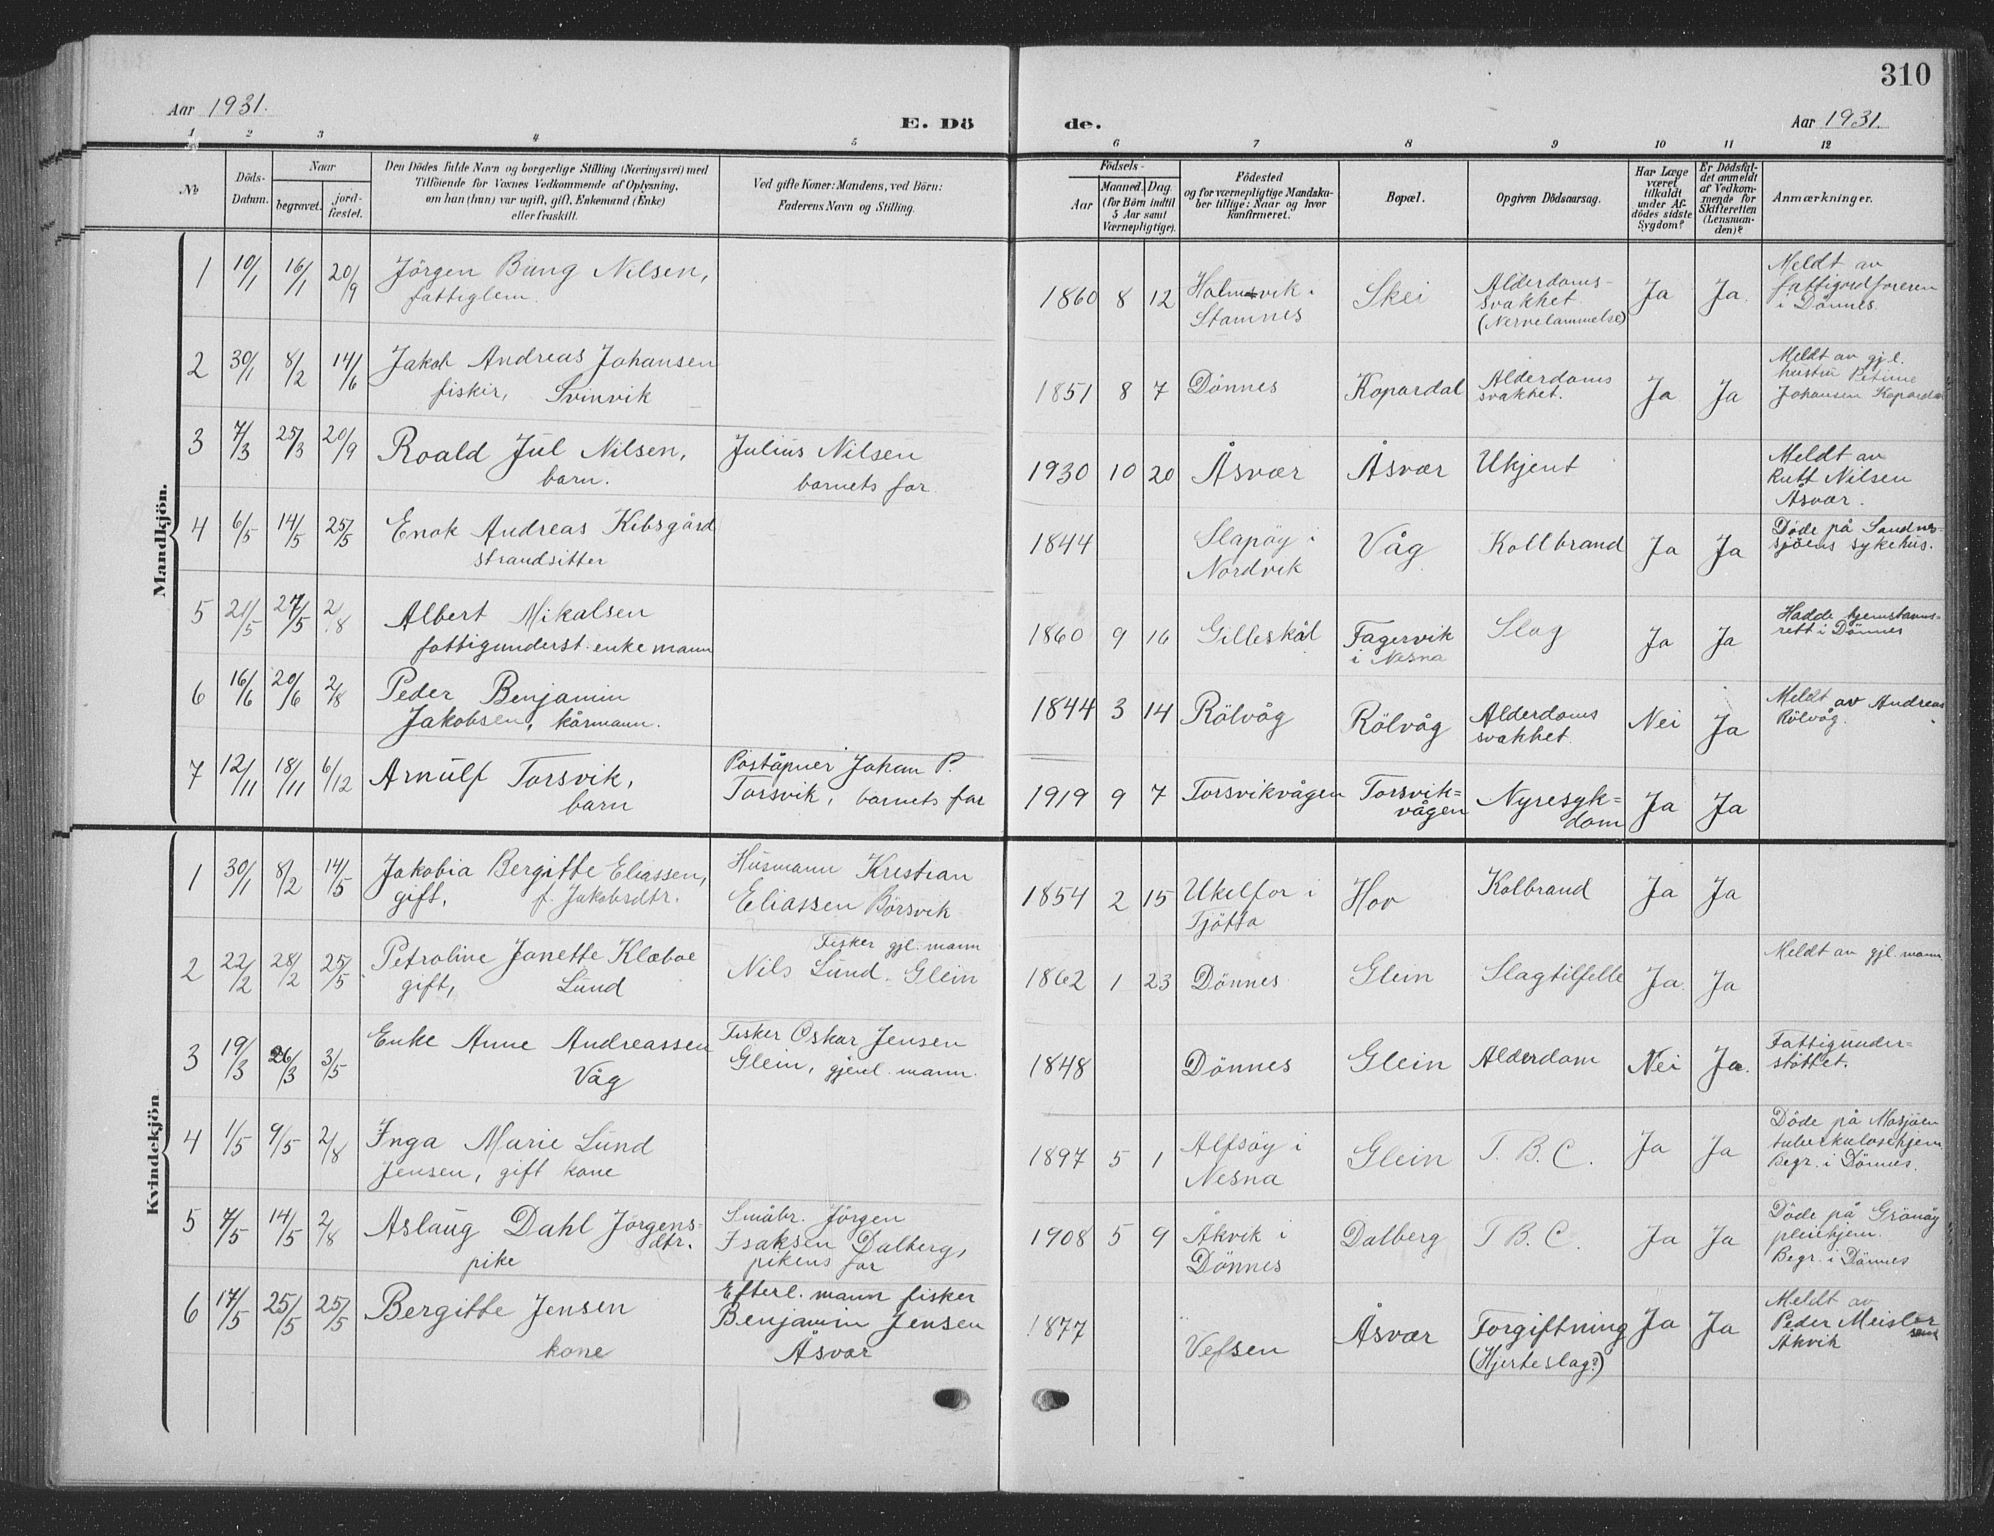 310
Aar 1931.
E. Dö
de.
Aar 1931.
1 2 3 4 5 6 7 8 9 10 11 12
No
Döds-
Datum.
Naar
begravet.
jord-
fæstet.
Den Dödes fulde Navn og borgerlige Stilling (Næringsvei) med
Tilföiende for Voxnes Vedkommende af Oplysning,
om han (hun) var ugift, gift, Enkemand (Enke)
eller fraskilt.
Ved gifte Koner: Mandens, ved Börn:
Faderens Navn og Stilling.
Födsels-
Aar
Maaned. Dag.
(for Börn indtil
5 Aar samt
Værnepligtige).
Födested
og for værnepligtige Mandska-
ber tillige: Naar og hvor
konfirmeret.
Bopæl.
Opgiven Dödsaarsag.
Har Læge
været
tilkaldt
under Af-
dödes sidste
Sygdom?
Er Dödsfal-
det anmeldt
af Vedkom-
mende for
Skifteretten
(Lensman-
den)?
Anmærkninger.
Mandkjön.
1 10/1 16/1 20/9 Jörgen Bang Nilsen,
fattiglem.
1860 8 12 Holmsvik i
Stamnes
Skei
Alderdoms-
svakhet
(Nervelammelse)
Ja Ja.
Meldt av
fattigordføreren
i Dönnes.
2 30/1 8/2 14/6 Jakob Andreas Johansen
fisker, Svinvik
1851 8 7 Dönnes Kopardal
Alderdoms
svakhet.
Ja Ja
Meldt av gjl.
hustru Petrine
Johansen Kopardal
3 7/3 25/3 20/9 Roald Jul Nilsen,
barn.
Julius Nilsen
barnets far.
1930 10 20 Åsvær Åsvær Ukjent
Meldt av
Rutt Nilsen
Åsvær.
4 6/5 14/5 25/5 Enok Andreas Kibsgård
strandsitter
1844
Slapöy i
Nordvik
Våg Kollbrand Ja Ja
Döde på Sandnes-
sjöens sykehus.
5 21/5 27/5 2/8 Albert Mikalsen
fattigunderst. enkemann
1860 9 16 Gilleskål
Fagervik
i Nesna
Slag Ja Ja
Hadde hjemstavns-
rett i Dönnes
6 16/6 20/6 2/8 Peder Benjamin
Jakobsen, kårmann.
1844 3 14 Rölvåg Rölvåg
Alderdoms
svakhet.
Nei Ja
Meldt av Andreas
Rölvåg.
7 12/11 18/11 6/12 Arnulf Torsvik,
barn
Poståpner Johan P.
Torsvik, barnets far
1919 9 7 Torsvikvågen
Torsvik=
vågen
Nyresyk=
dom
Ja Ja
Kvindekjön
1 30/1 8/2 14/5 Jakobia Bergitte Eliassen,
gift, f. Jakobsdtr.
Husmann Kristian
Eliassen Börsvik
1854 2 15 Ukelfor i
Tjötta
Hov Kolbrand Ja Ja
2 22/2 28/2 25/5 Petroline Janette Klæboe
gift, Lund
Fisker gjl. mann
Nils Lund. Glein
1862 1 23 Dönnes Glein Slagtilfelle Ja. Ja
Meldt av gjl. mann
3 19/3 26/3 3/5 Enke Anne Andreassen
Våg
Fisker Oskar Jensen
Glein, gjenl. mann.
1848 Dönnes Glein Alderdom Nei Ja.
Fattigunder-
støttet.
4 1/5 9/5 2/8 Inga Marie Lund
Jensen, gift kone
1897 5 1 Alfsöy i
Nesna
Glein T.B.C. Ja Ja
Döde på Mosjöen
tuberkulosehjem
Begr. i Dönnes.
5 7/5 14/5 2/8 Aslaug Dahl Jörgens-
dtr.
pike
Småbr. Jörgen
Isaksen Dalberg,
pikens far
1908 5 9 Åkvik i
Dönnes
Dalberg T.B.C. Ja Ja
Döde på Grönöy
pleiehjem.
Begr. i Dönnes
6 17/5 25/5 25/5 Bergitte Jensen
kone
Efterl. mann fisker
Benjamin Jensen
Åsvær
1877 Vefsen Åsvær
Forgiftning
(Hjerteslag?)
Ja Ja
Meldt av
Peder Meisler
Åkvik